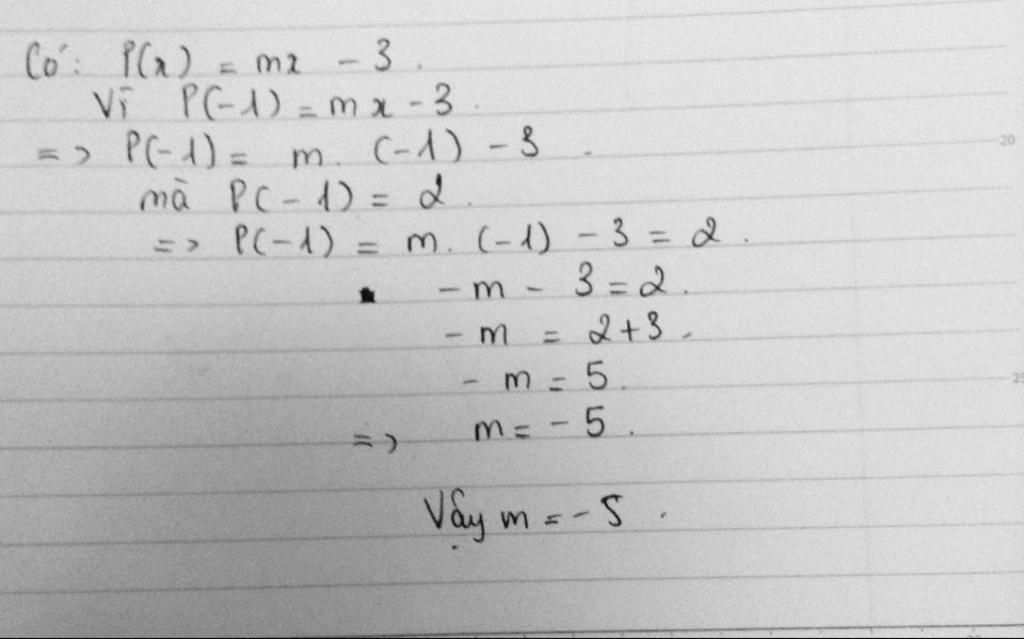 Có: P(x) = mx - 3.
Vì P(-1) = mx - 3.
=> P(-1) = m. (-1) - 3.
mà P(-1) = 2.
=> P(-1) = m. (-1) - 3 = 2.
-m - 3 = 2.
-m = 2+3.
-m = 5.
=> m = -5.
Vậy m = -5.
20
25